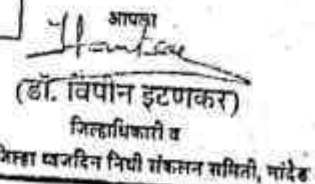 आपला
(डॉ. विपीन इटणकर)
जिल्हाधिकारी व
जिल्हा ध्वजदिन निधी संकलन समिती, नांदेड